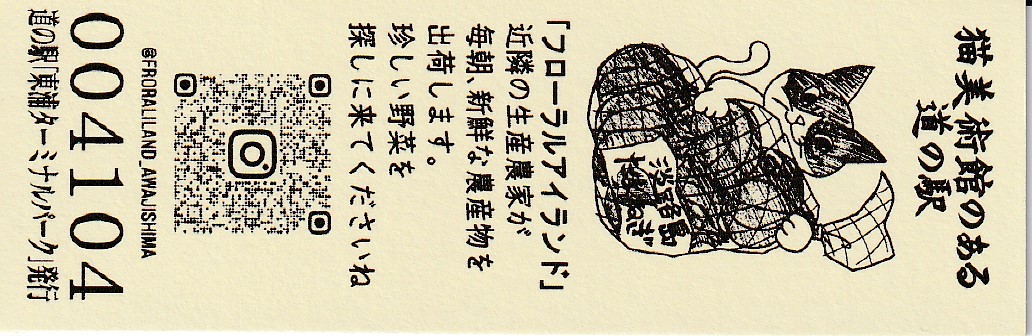 猫美術館のある
道の駅
淡路島
たまねぎ
「フローラルアイランド」
近隣の生産農家が
毎朝、新鮮な農産物を
出荷します。
珍しい野菜を
探しに来てくださいね
@FRORALILAND_AWAJISHIMA
004104
道の駅「東浦ターミナルパーク」発行